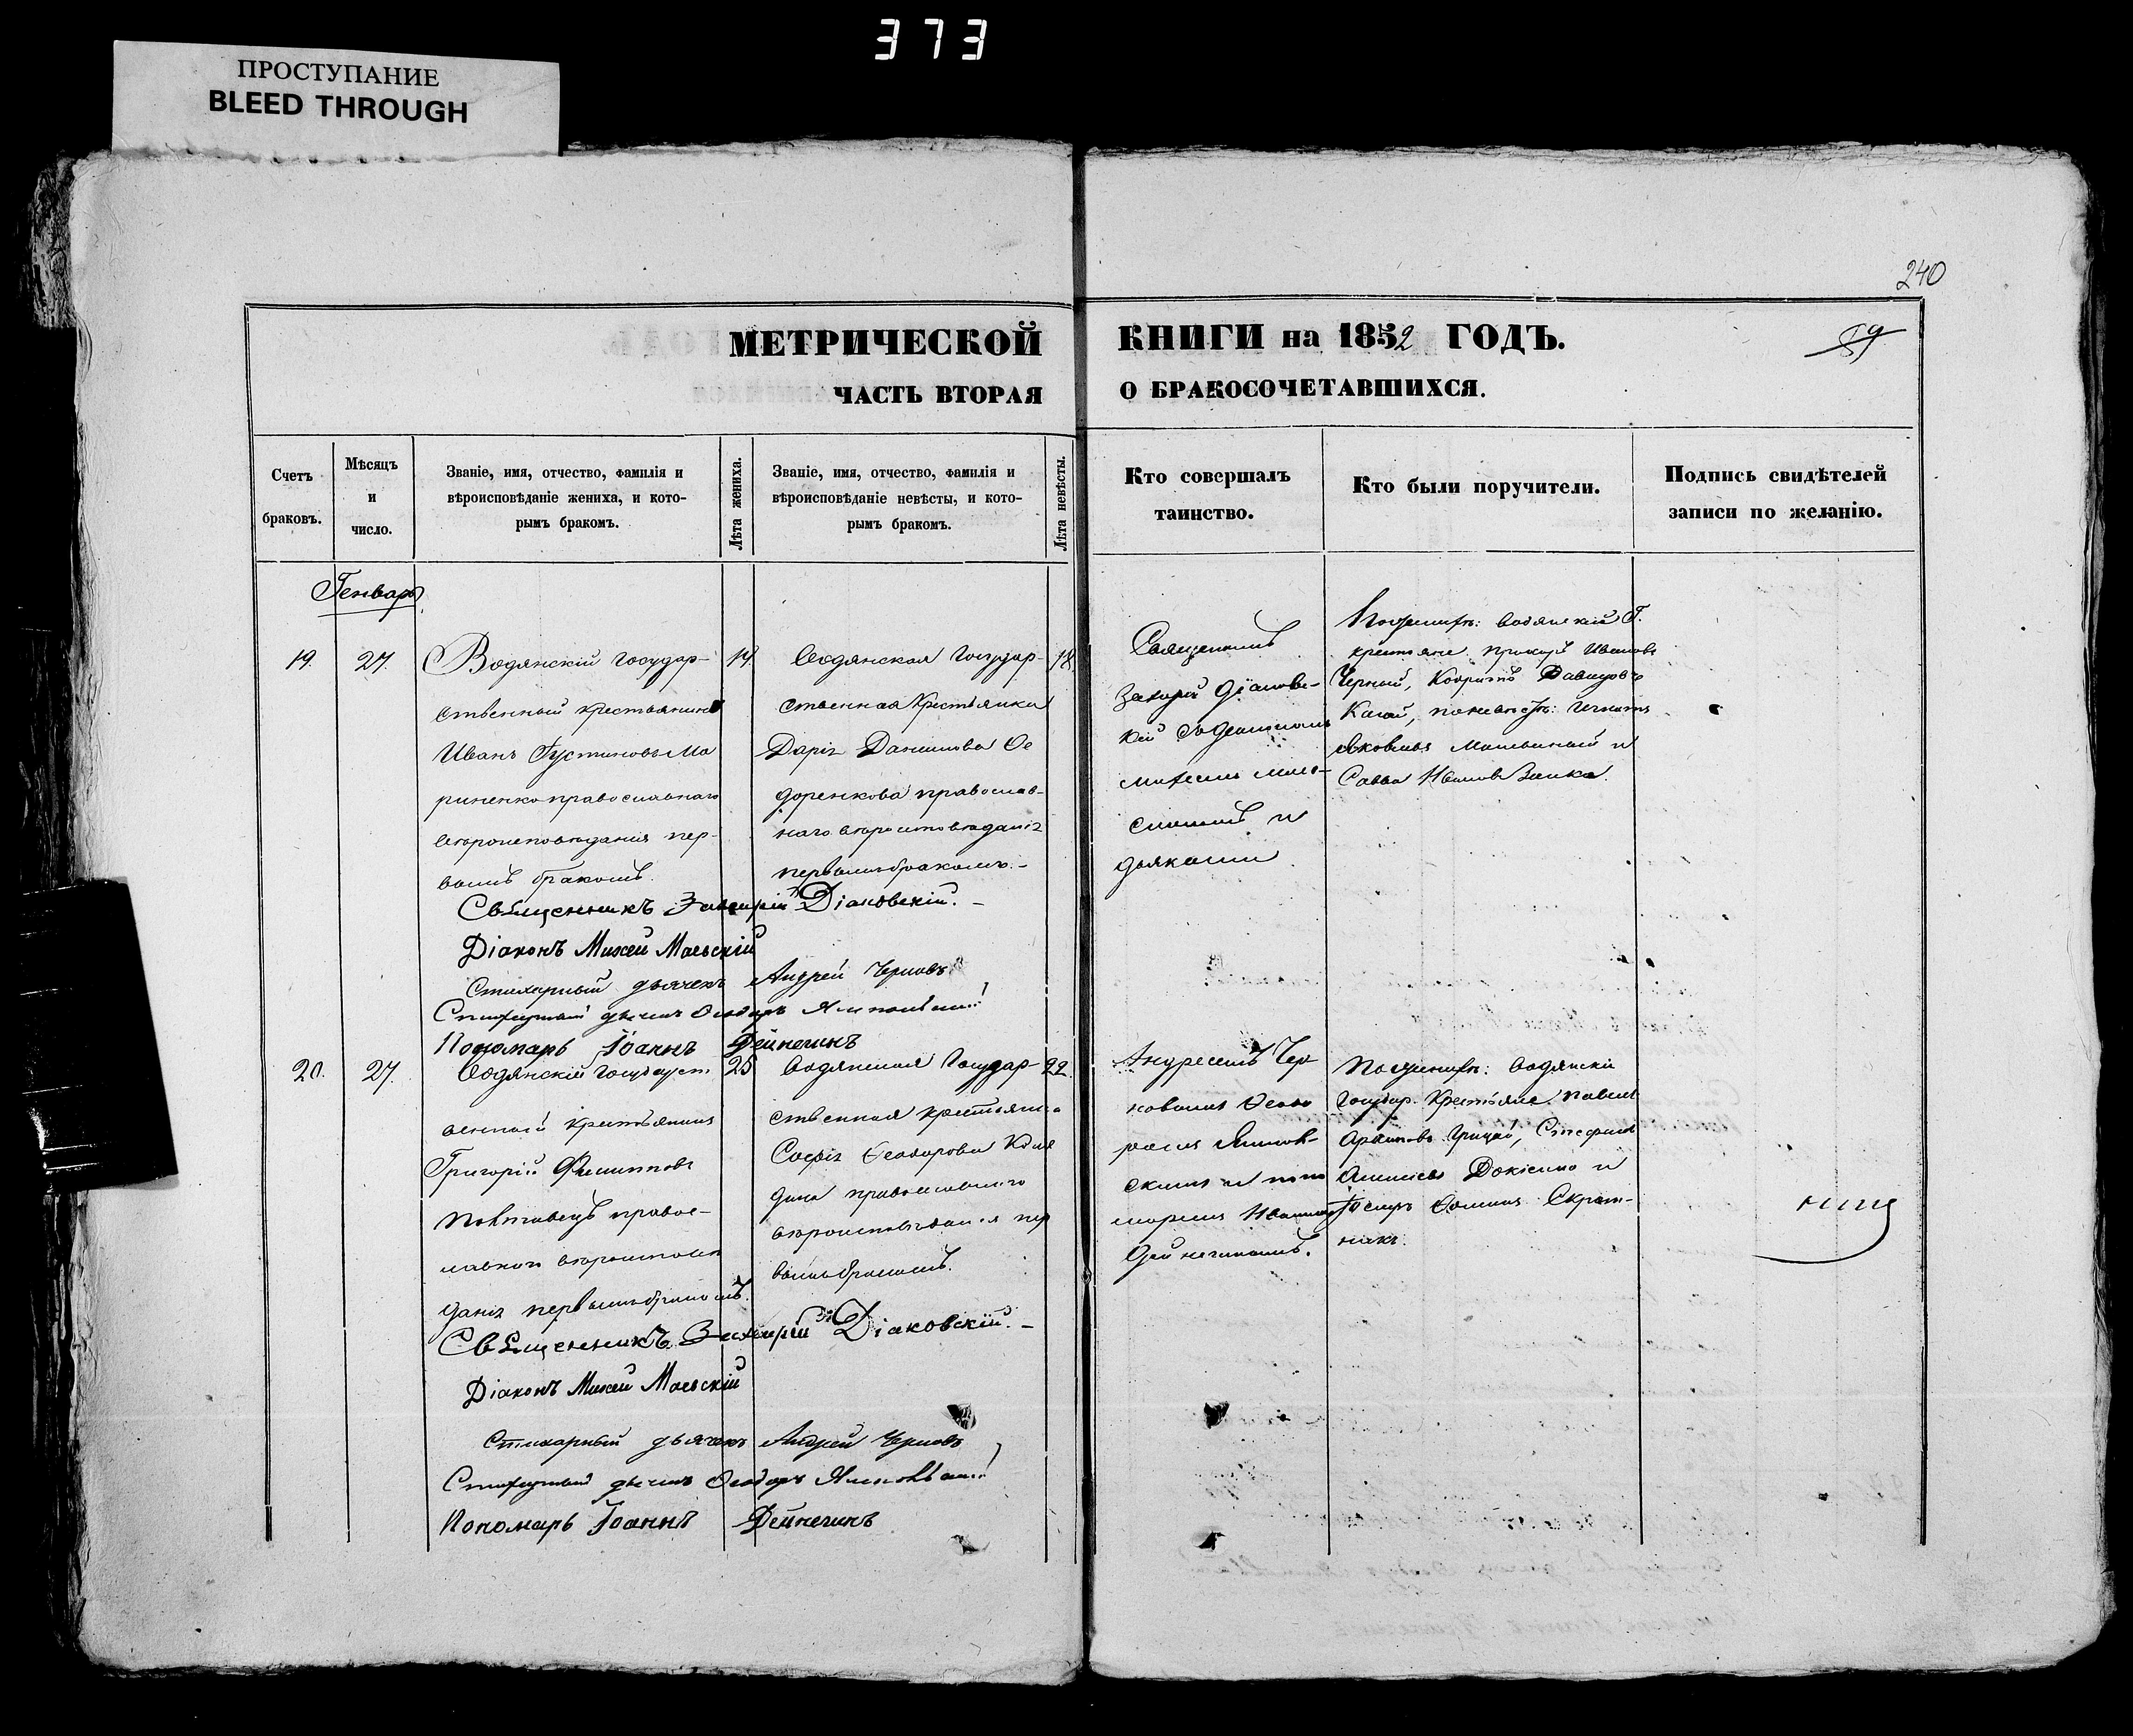 373
ПРОСТУПАНИЕ
BLEED THROUGH
240
МЕТРИЧЕСКОЙ КНИГИ на 1852 ГОДЪ.
59
ЧАСТЬ ВТОРАЯ О БРАКОСОЧЕТАВШИХСЯ.
Счетъ
браковъ.
Мѣсяцъ
и
число.
Званіе, имя, отчество, фамилія и
вѣроисповѣданіе жениха, и кото-
рымъ бракомъ.
Лѣта жениха.
Званіе, имя, отчество, фамилія и
вѣроисповѣданіе невѣсты, и кото-
рымъ бракомъ.
Лѣта невѣсты.
Кто совершалъ
таинство.
Кто были поручители.
Подпись свидѣтелей
записи по желанію.
Генварь
19.
27.
Водянскій государ-
ственный крестьянинъ
Иванъ Іустиновъ Ма
риненко православнаго
вѣроисповѣданія пер-
вымъ бракомъ.
19
Водянская государ-
ственная крестьянка
Дарія Данилова Ѳе
доренкова православ-
наго вѣроисповѣданія
первымъ бракомъ.-
18.
Священникъ
Захарій Діаковс-
кій съ діакономъ
Михеемъ
и
дьяками
Водянскій Г.
крестьяне Прокофій Ивановъ
Черный, Давидовъ
Яковлевъ и
Савва Ивановъ Заика.
Священникъ Захарій Діаковскій.-
Діаконъ Михей Маевскій
Стихарный дьячекъ Андрей Черновъ
Стихарный дьячекъ Ѳеодоръ
Пономарь Іоаннъ Дейнечинъ
20.
27.
Водянскій государст
венный крестьянинъ
Григорій Филипповъ
Полтавецъ правос-
лавнаго вѣроисповѣ
данія первымъ бракомъ.
25
Водянская государ-
ственная крестьянка
Софія Ѳеодорова
православнаго
вѣроисповѣданія пер
вымъ бракомъ.
22.
Андреемъ Чер
новымъ Ѳеодо
ромъ
скимъ и поно
маремъ Иваномъ
Дейнечинымъ.
Водянскіе
государ. крестьяне: Павелъ
Грицай, Стефанъ
и
Іосифъ Ѳоминъ
никъ.
Священникъ Захарій Діаковскій.-
Діаконъ Михей Маевскій
Стихарный дьячекъ Андрей Черновъ
Стихарный дьячекъ Ѳеодоръ
Пономарь Іоаннъ Дейнечинъ